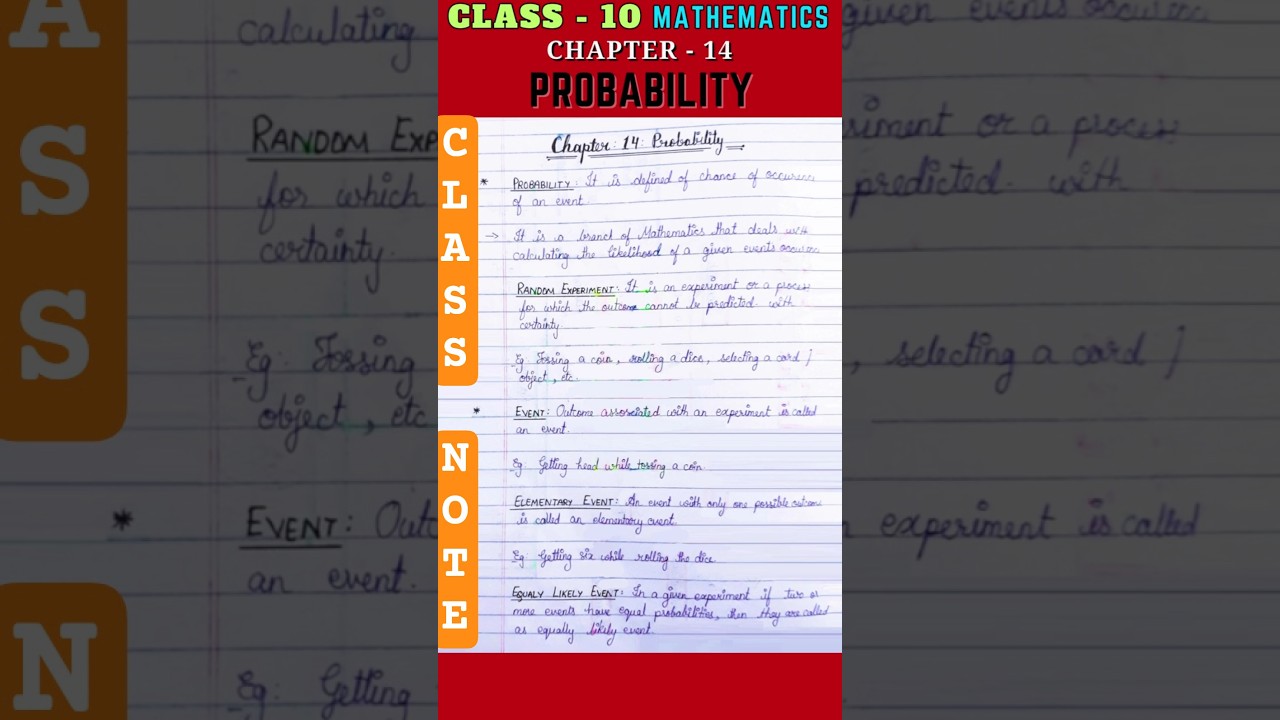 CLASS - 10 MATHEMATICS
CHAPTER - 14
PROBABILITY
CLASS
NOTE
Chapter: 14: Probability
* PROBABILITY: It is defined of chance of
of an event.
→ It is a branch of Mathematics that deals with
calculating the likelihood of a given events
RANDOM EXPERIMENT: It is an experiment or a process
for which the outcome cannot be predicted with
certainty.
Eg Tossing a coin, rolling a dice, selecting a card /
object, etc.
* EVENT: Outcome associated with an experiment is called
an event.
Eg: Getting head while tossing a coin.
ELEMENTARY EVENT: An event with only one possible outcome
is called an elementary event.
Eg: Getting six while rolling the dice.
EQUALY LIKELY EVENT: In a given experiment if two or
more events have equal probabilities, then they are called
as equally likely event.
A
S
S
N
calculating
RANDOM EXP
for which
certainty.
Eg Tossing
object, etc
* EVENT: Out
an event.
Eg: Getting
given events
iment or a process
predicted with
, selecting a card /
experiment is called